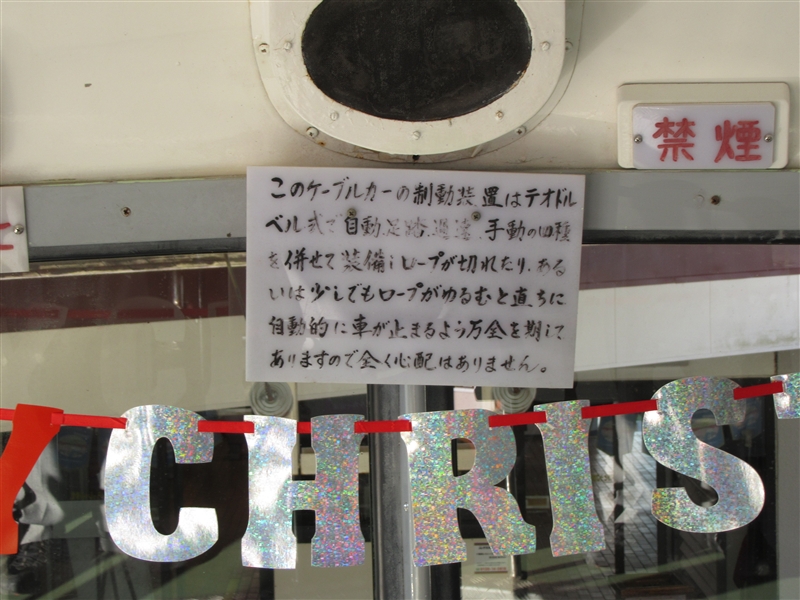 禁煙
このケーブルカーの制動装置はテオドル
ベル式で自動、足踏、過速、手動の四種
を併せて装備しロープが切れたり、ある
いは少しでもロープがゆるむと直ちに
自動的に車が止まるよう万全を期して
ありますので全く心配はありません。
Y CHRIST